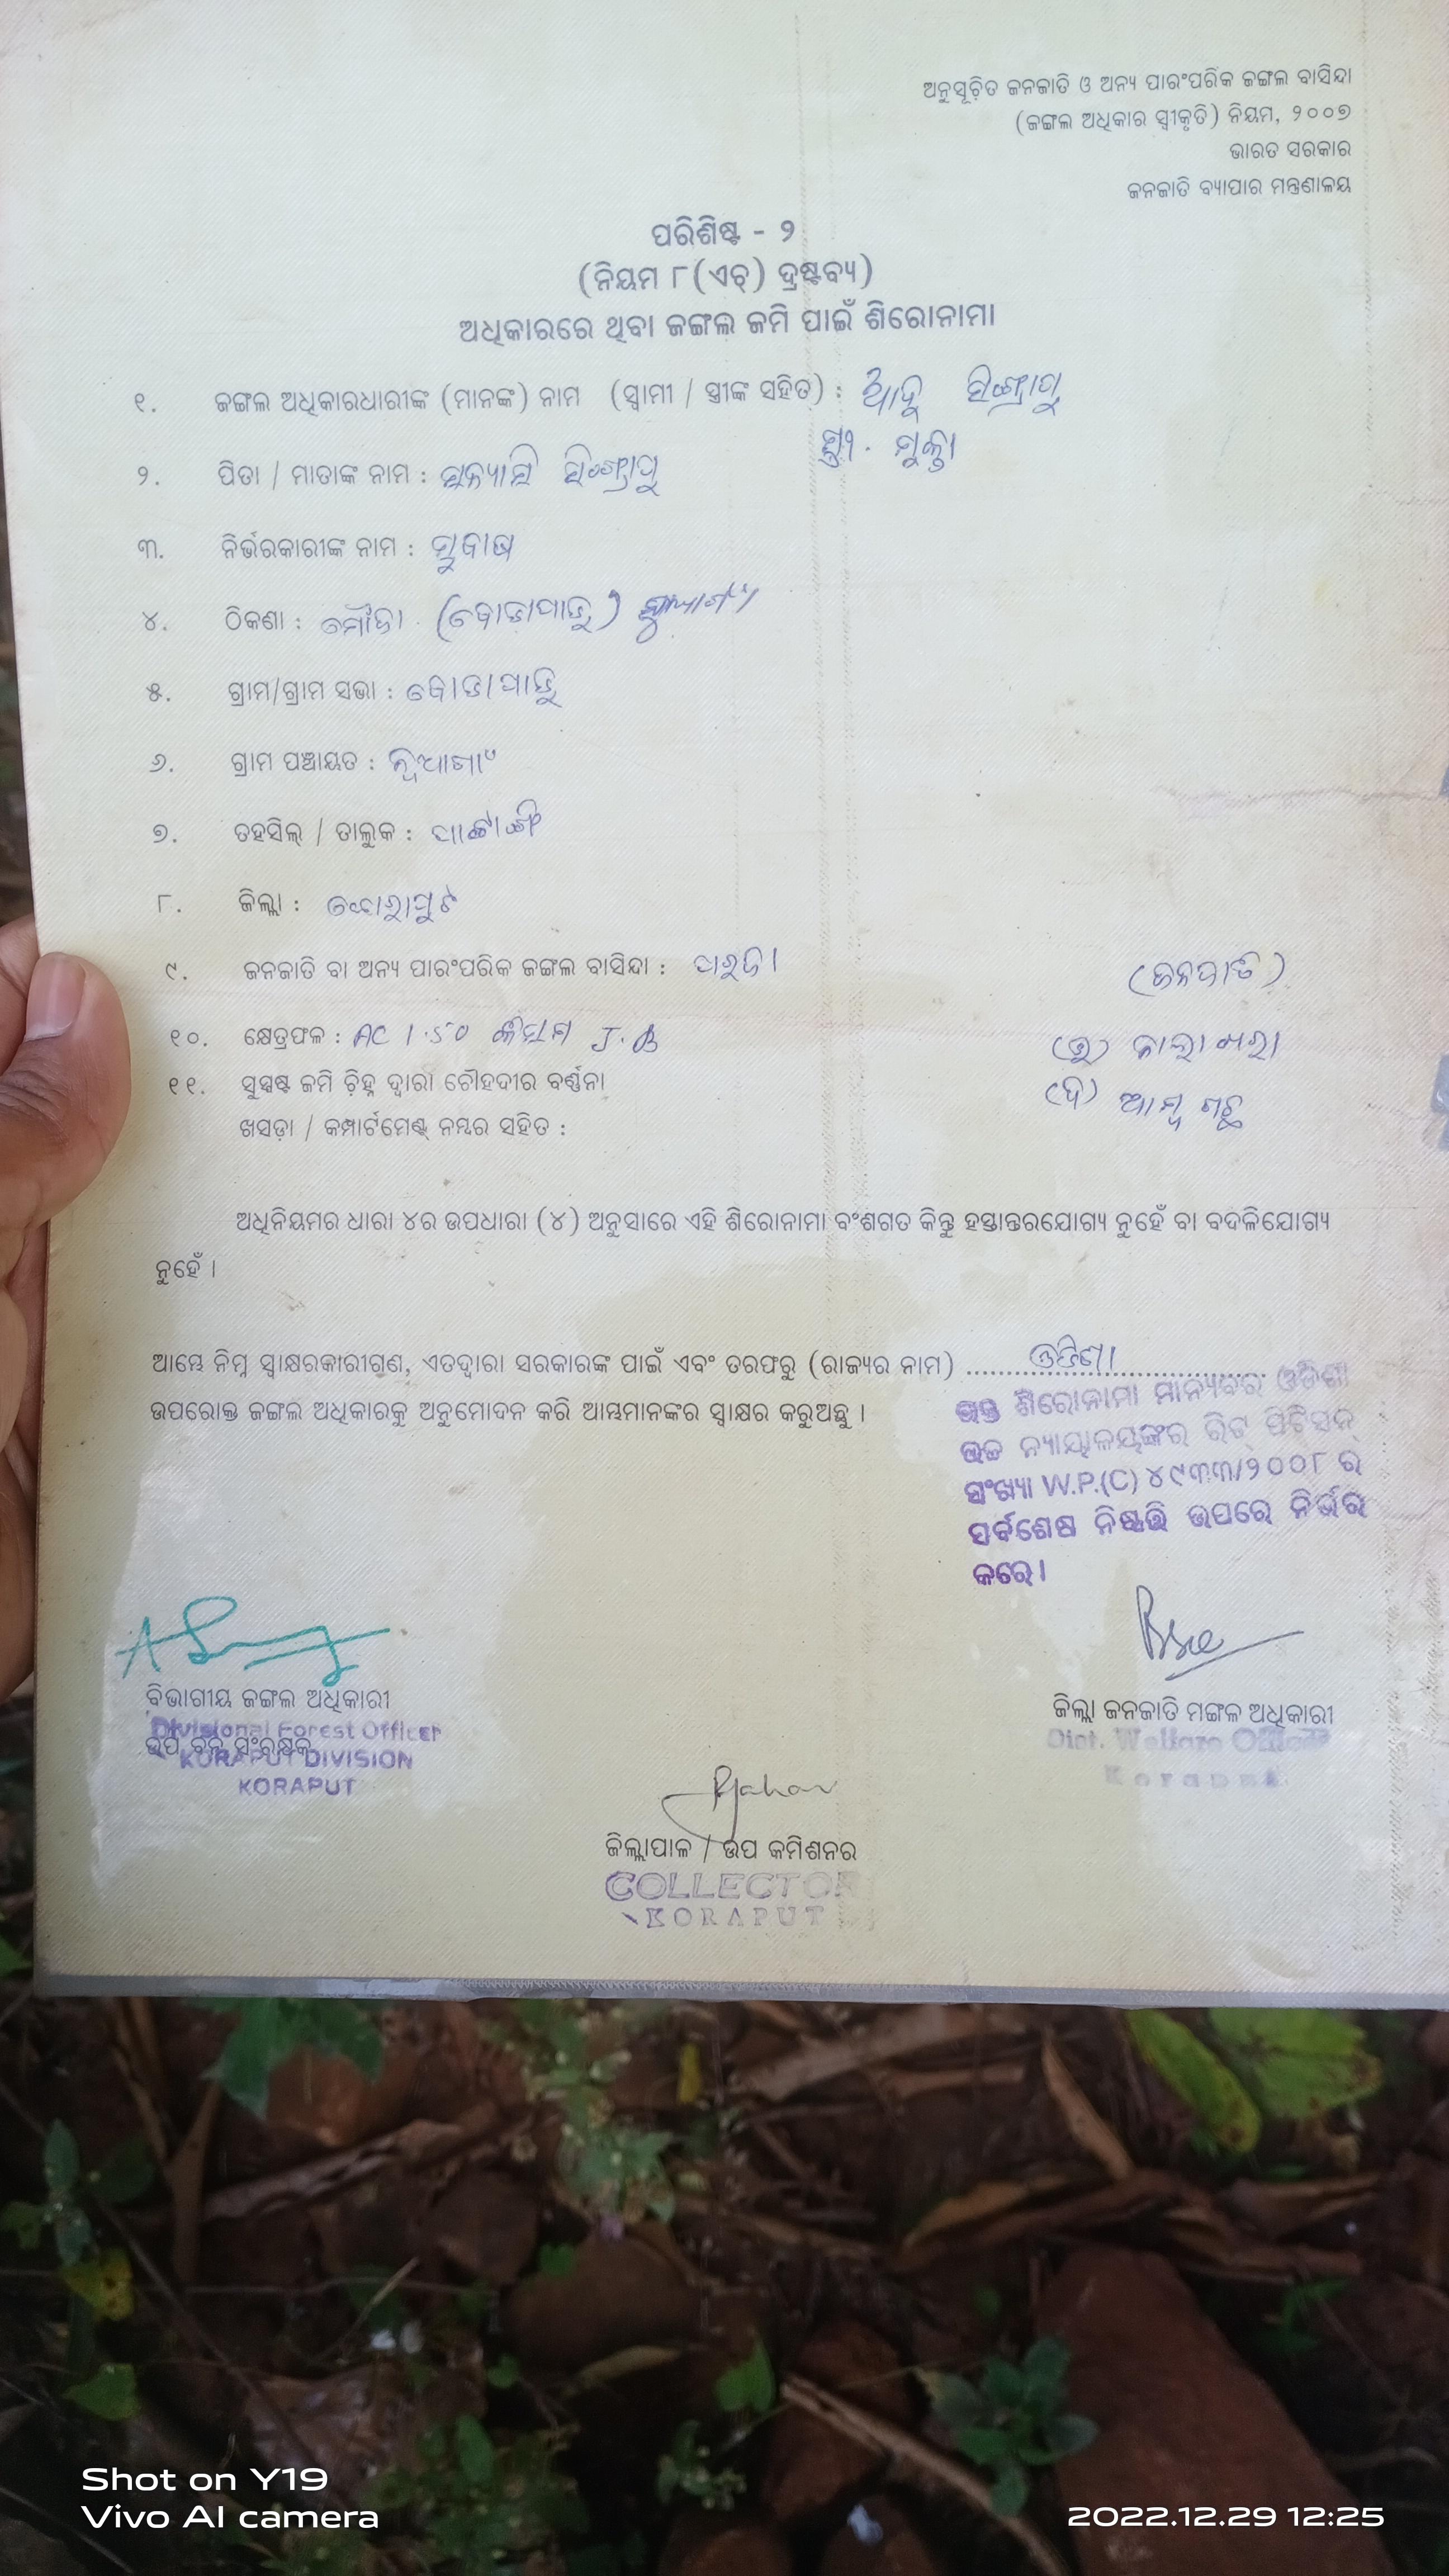 ଅନୁସୂଚିତ ଜନଜାତି ଓ ଅନ୍ୟ ପାରଂପରିକ ଜଙ୍ଗଲ ବାସିନ୍ଦା
(ଜଙ୍ଗଲ ଅଧିକାର ସ୍ୱୀକୃତି) ନିୟମ, ୨୦୦୭
ଭାରତ ସରକାର
ଜନଜାତି ବ୍ୟାପାର ମନ୍ତ୍ରଣାଳୟ
ପରିଶିଷ୍ଟ - ୨
(ନିୟମ ୮(ଏଚ୍) ଦ୍ରଷ୍ଟବ୍ୟ)
ଅଧିକାରରେ ଥିବା ଜଙ୍ଗଲ ଜମି ପାଇଁ ଶିରୋନାମା
୧. ଜଙ୍ଗଲ ଅଧିକାରଧାରୀଙ୍କ (ମାନଙ୍କ) ନାମ (ସ୍ୱାମୀ / ସ୍ତ୍ରୀଙ୍କ ସହିତ) :
ମୁକ୍ତା
୨. ପିତା / ମାତାଙ୍କ ନାମ :
୩. ନିର୍ଭରକାରୀଙ୍କ ନାମ :
୪. ଠିକଣା : ମୌଜା
୫. ଗ୍ରାମ/ଗ୍ରାମ ସଭା :
୬. ଗ୍ରାମ ପଞ୍ଚାୟତ : ନୂଆଗାଁ
୭. ତହସିଲ୍ / ତାଲୁକ : ପଟାଙ୍ଗି
୮. ଜିଲ୍ଲା : କୋରାପୁଟ
୯. ଜନଜାତି ବା ଅନ୍ୟ ପାରଂପରିକ ଜଙ୍ଗଲ ବାସିନ୍ଦା : ପରଜା (ଜନଜାତି)
୧୦. କ୍ଷେତ୍ରଫଳ : AC 1.50 କିସମ J.B
(ଉ)
୧୧. ସୁସ୍ପଷ୍ଟ ଜମି ଚିହ୍ନ ଦ୍ୱାରା ଚୌହଦୀର ବର୍ଣ୍ଣନା (ଦ) ଆମ୍ବ ଗଛ
ଖସଡ଼ା / କମ୍ପାର୍ଟମେଣ୍ଟ୍ ନମ୍ବର ସହିତ :
ଅଧିନିୟମର ଧାରା ୪ର ଉପଧାରା (୪) ଅନୁସାରେ ଏହି ଶିରୋନାମା ବଂଶଗତ କିନ୍ତୁ ହସ୍ତାନ୍ତରଯୋଗ୍ୟ ନୁହେଁ ବା ବଦଳିଯୋଗ୍ୟ
ନୁହେଁ ।
ଆମ୍ଭେ ନିମ୍ନ ସ୍ୱାକ୍ଷରକାରୀଗଣ, ଏତଦ୍ୱାରା ସରକାରଙ୍କ ପାଇଁ ଏବଂ ତରଫରୁ (ରାଜ୍ୟର ନାମ) ......ଓଡିଶା......
ଉପରୋକ୍ତ ଜଙ୍ଗଲ ଅଧିକାରକୁ ଅନୁମୋଦନ କରି ଆମ୍ଭମାନଙ୍କର ସ୍ୱାକ୍ଷର କରୁଅଛୁ ।
ଉକ୍ତ ଶିରୋନାମା ମାନ୍ୟବର ଓଡିଶା
ଉଚ୍ଚ ନ୍ୟାୟାଳୟଙ୍କର ରିଟ୍ ପିଟିସନ୍
ସଂଖ୍ୟା W.P.(C) ୪୯୩୩/୨୦୦୮ ର
ସର୍ବଶେଷ ନିଷ୍ପତ୍ତି ଉପରେ ନିର୍ଭର
କରେ।
ବିଭାଗୀୟ ଜଙ୍ଗଲ ଅଧିକାରୀ
Divisional Forest Officer
ଉପ ବନ ସଂରକ୍ଷକ
KORAPUT DIVISION
KORAPUT
ଜିଲ୍ଲା ଜନଜାତି ମଙ୍ଗଳ ଅଧିକାରୀ
Dist. Welfare Officer
ଜିଲ୍ଲାପାଳ / ଉପ କମିଶନର
COLLECTOR
KORAPUT
Shot on Y19
Vivo AI camera
2022.12.29 12:25